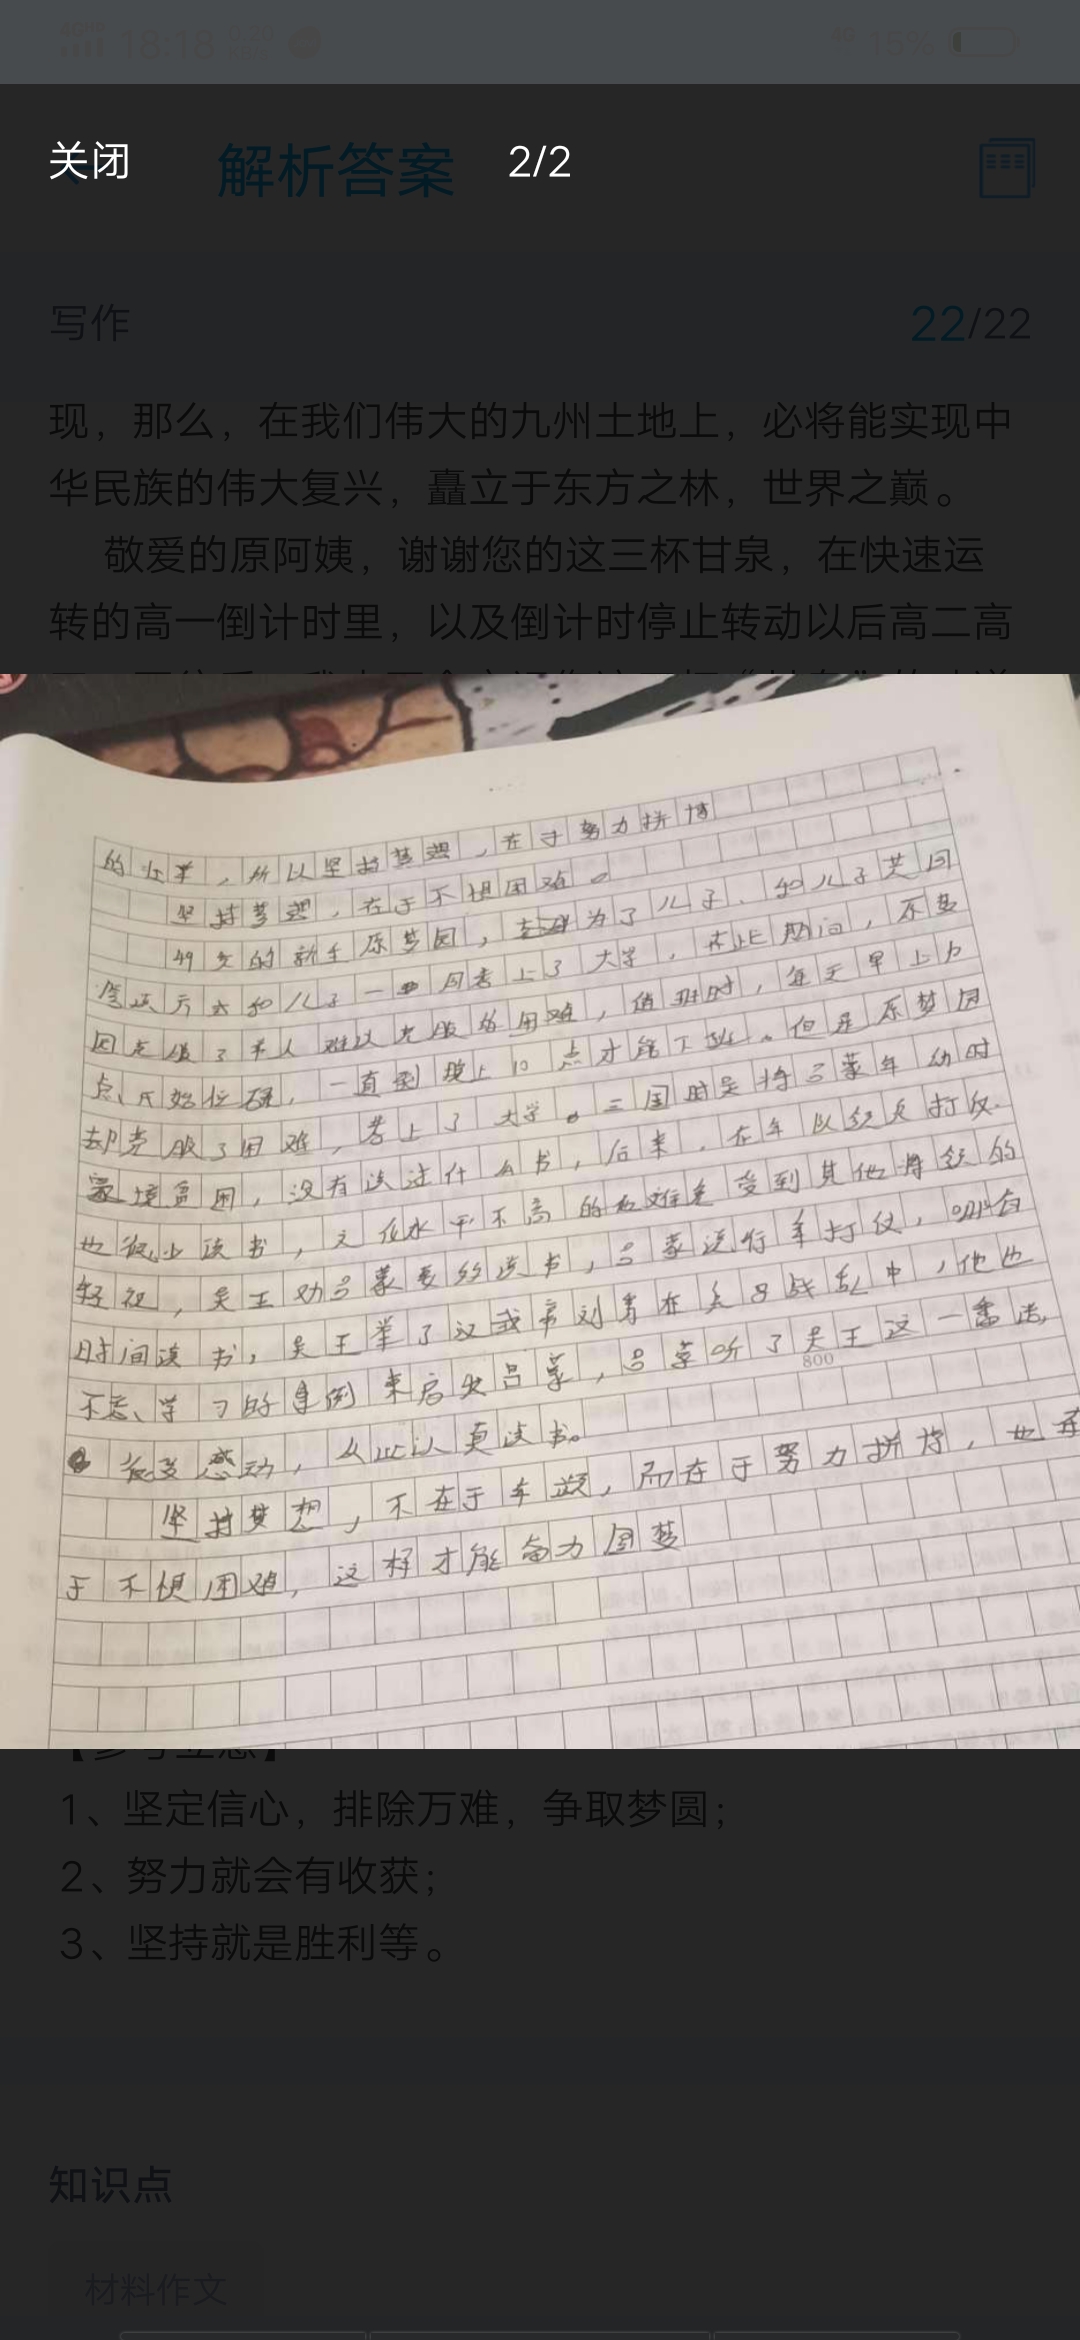 18:18
15%
关闭
解析答案
2/2
写作
22/22
现，那么，在我们伟大的九州土地上，必将能实现中
华民族的伟大复兴，矗立于东方之林，世界之巅。
敬爱的原阿姨，谢谢您的这三杯甘泉，在快速运
转的高一倒计时里，以及倒计时停止转动以后高二高
的，所以坚持梦想，在于努力拼搏
坚持梦想，在于不惧困难。
49岁的新生原梦园，为了儿子，和儿子共同
和儿子一同考上了大学，在此期间，原梦
园克服了常人难以克服的困难，值班时，每天早上六
点，一直到晚上10点才能下班。但是原梦园
却克服了困难，考上了大学。三国时吴将吕蒙年幼时
家境贫困，没有读过什么书，后来，在军队领兵打仗.
也很少读书，文化水平不高的他难免受到其他将领的
轻视，吴王劝吕蒙要多读书，吕蒙说行军打仗，哪有
时间读书，吴王举了汉武帝刘秀在兵马战乱中，他也
不忘学习的事例来启发吕蒙，吕蒙听了吴王这一番话，
800
被受感动，从此认真读书。
坚持梦想，不在于年龄，而在于努力拼搏，也在
于不惧困难，这样才能奋力圆梦
【参考立意】
1、坚定信心，排除万难，争取梦圆；
2、努力就会有收获；
3、坚持就是胜利等。
知识点
材料作文